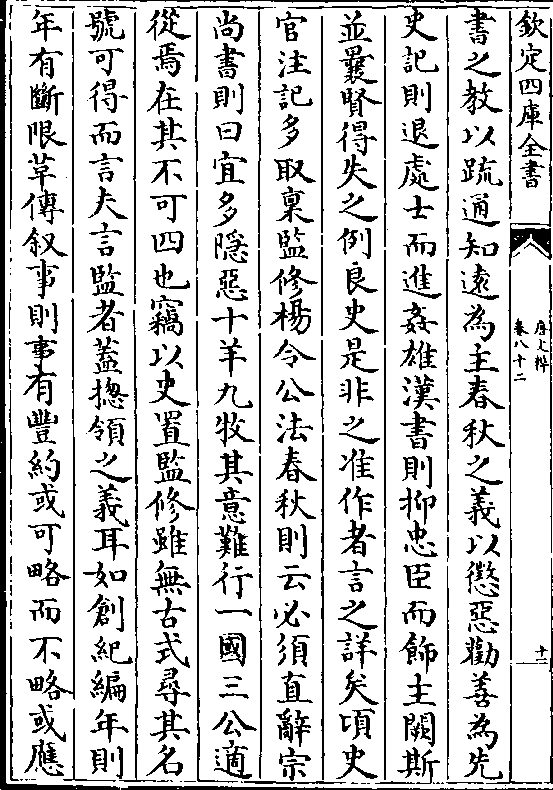 欽定四庫全書
唐文粹
卷八十二
十二
書之教以疏通知逺為主春秋之義以懲惡勸善為先
史記則退處士而進姦雄漢書則抑忠臣而飾主闕斯
並曩賢得失之例良史是非之准作者言之詳矣頃史
官注記多取稟監修楊令公法春秋則云必須直辭宗
尚書則曰宜多隠惡十羊九牧其意難行一國三公適
從焉在其不可四也竊以史置監修雖無古式尋其名
號可得而言夫言監者葢揔領之義耳如創紀編年則
年有斷限草傳叙事則事有豐約或可略而不略或應